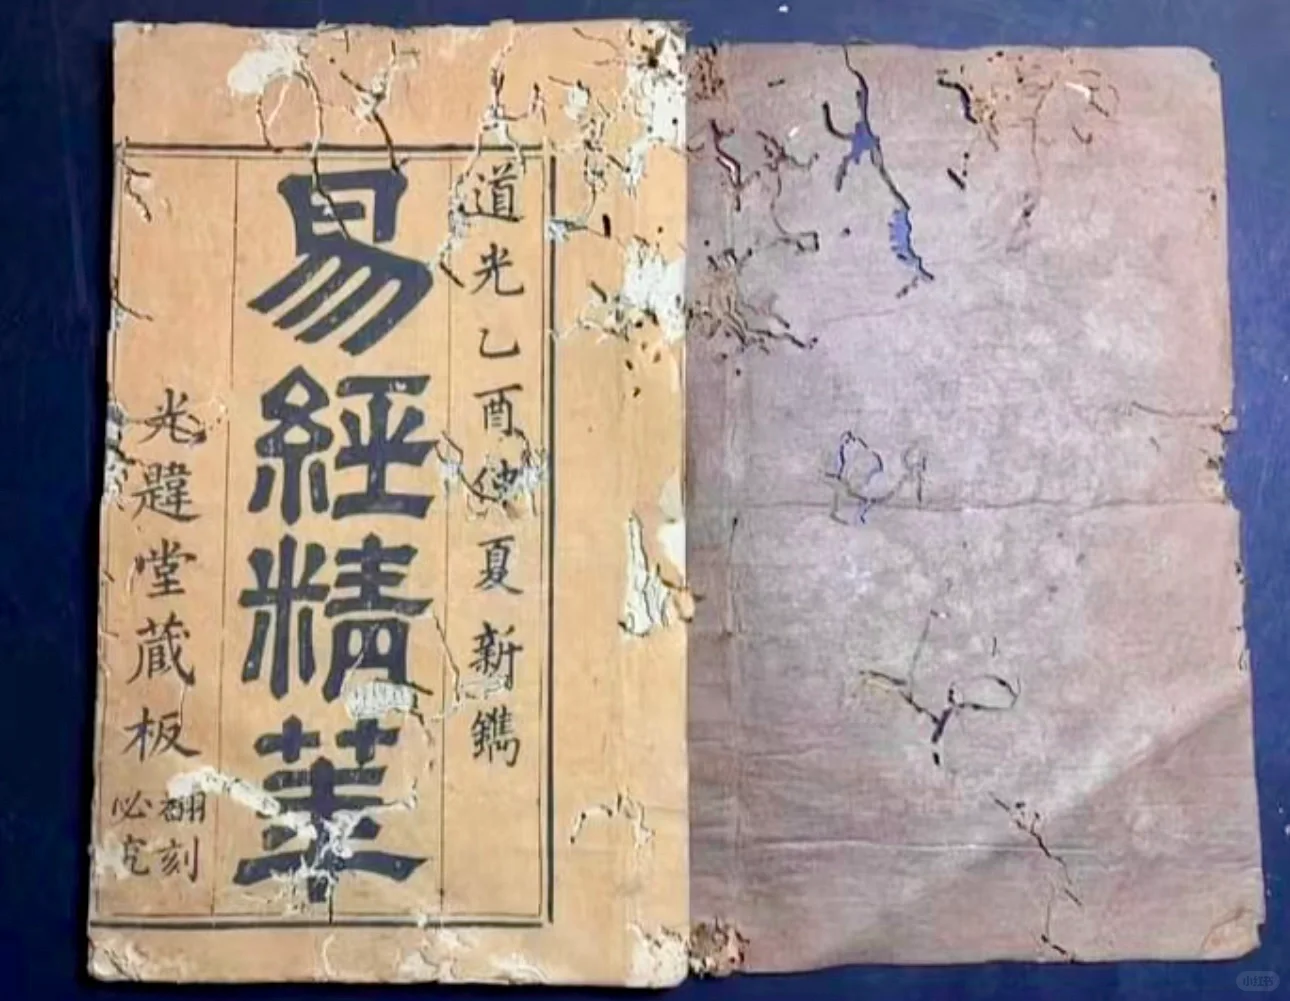 道光乙酉仲夏新鐫
易經精華
光韙堂藏板
翻刻
必究
小红书